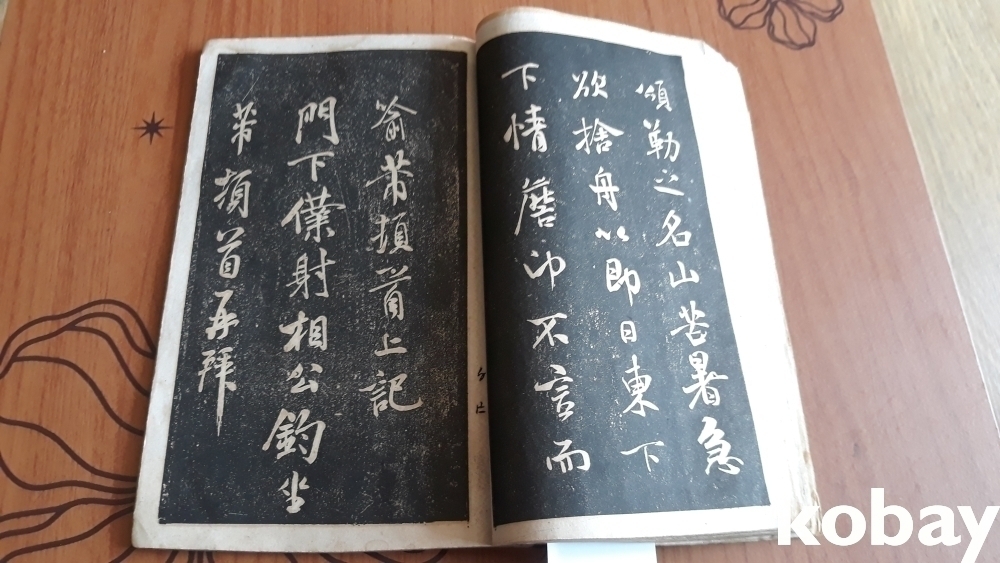 頌勒之名山苦暑急
欲捨舟以即日東下
下情蘑卬不宣而
芾頓首上記
門下僕射相公鈞坐
芾頓首再拜
kobay